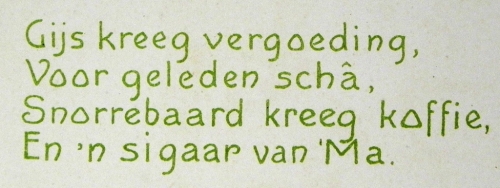 Gijs kreeg vergoeding,
Voor geleden schâ,
Snorrebaard kreeg koffie,
En 'n sigaar van 'Ma.